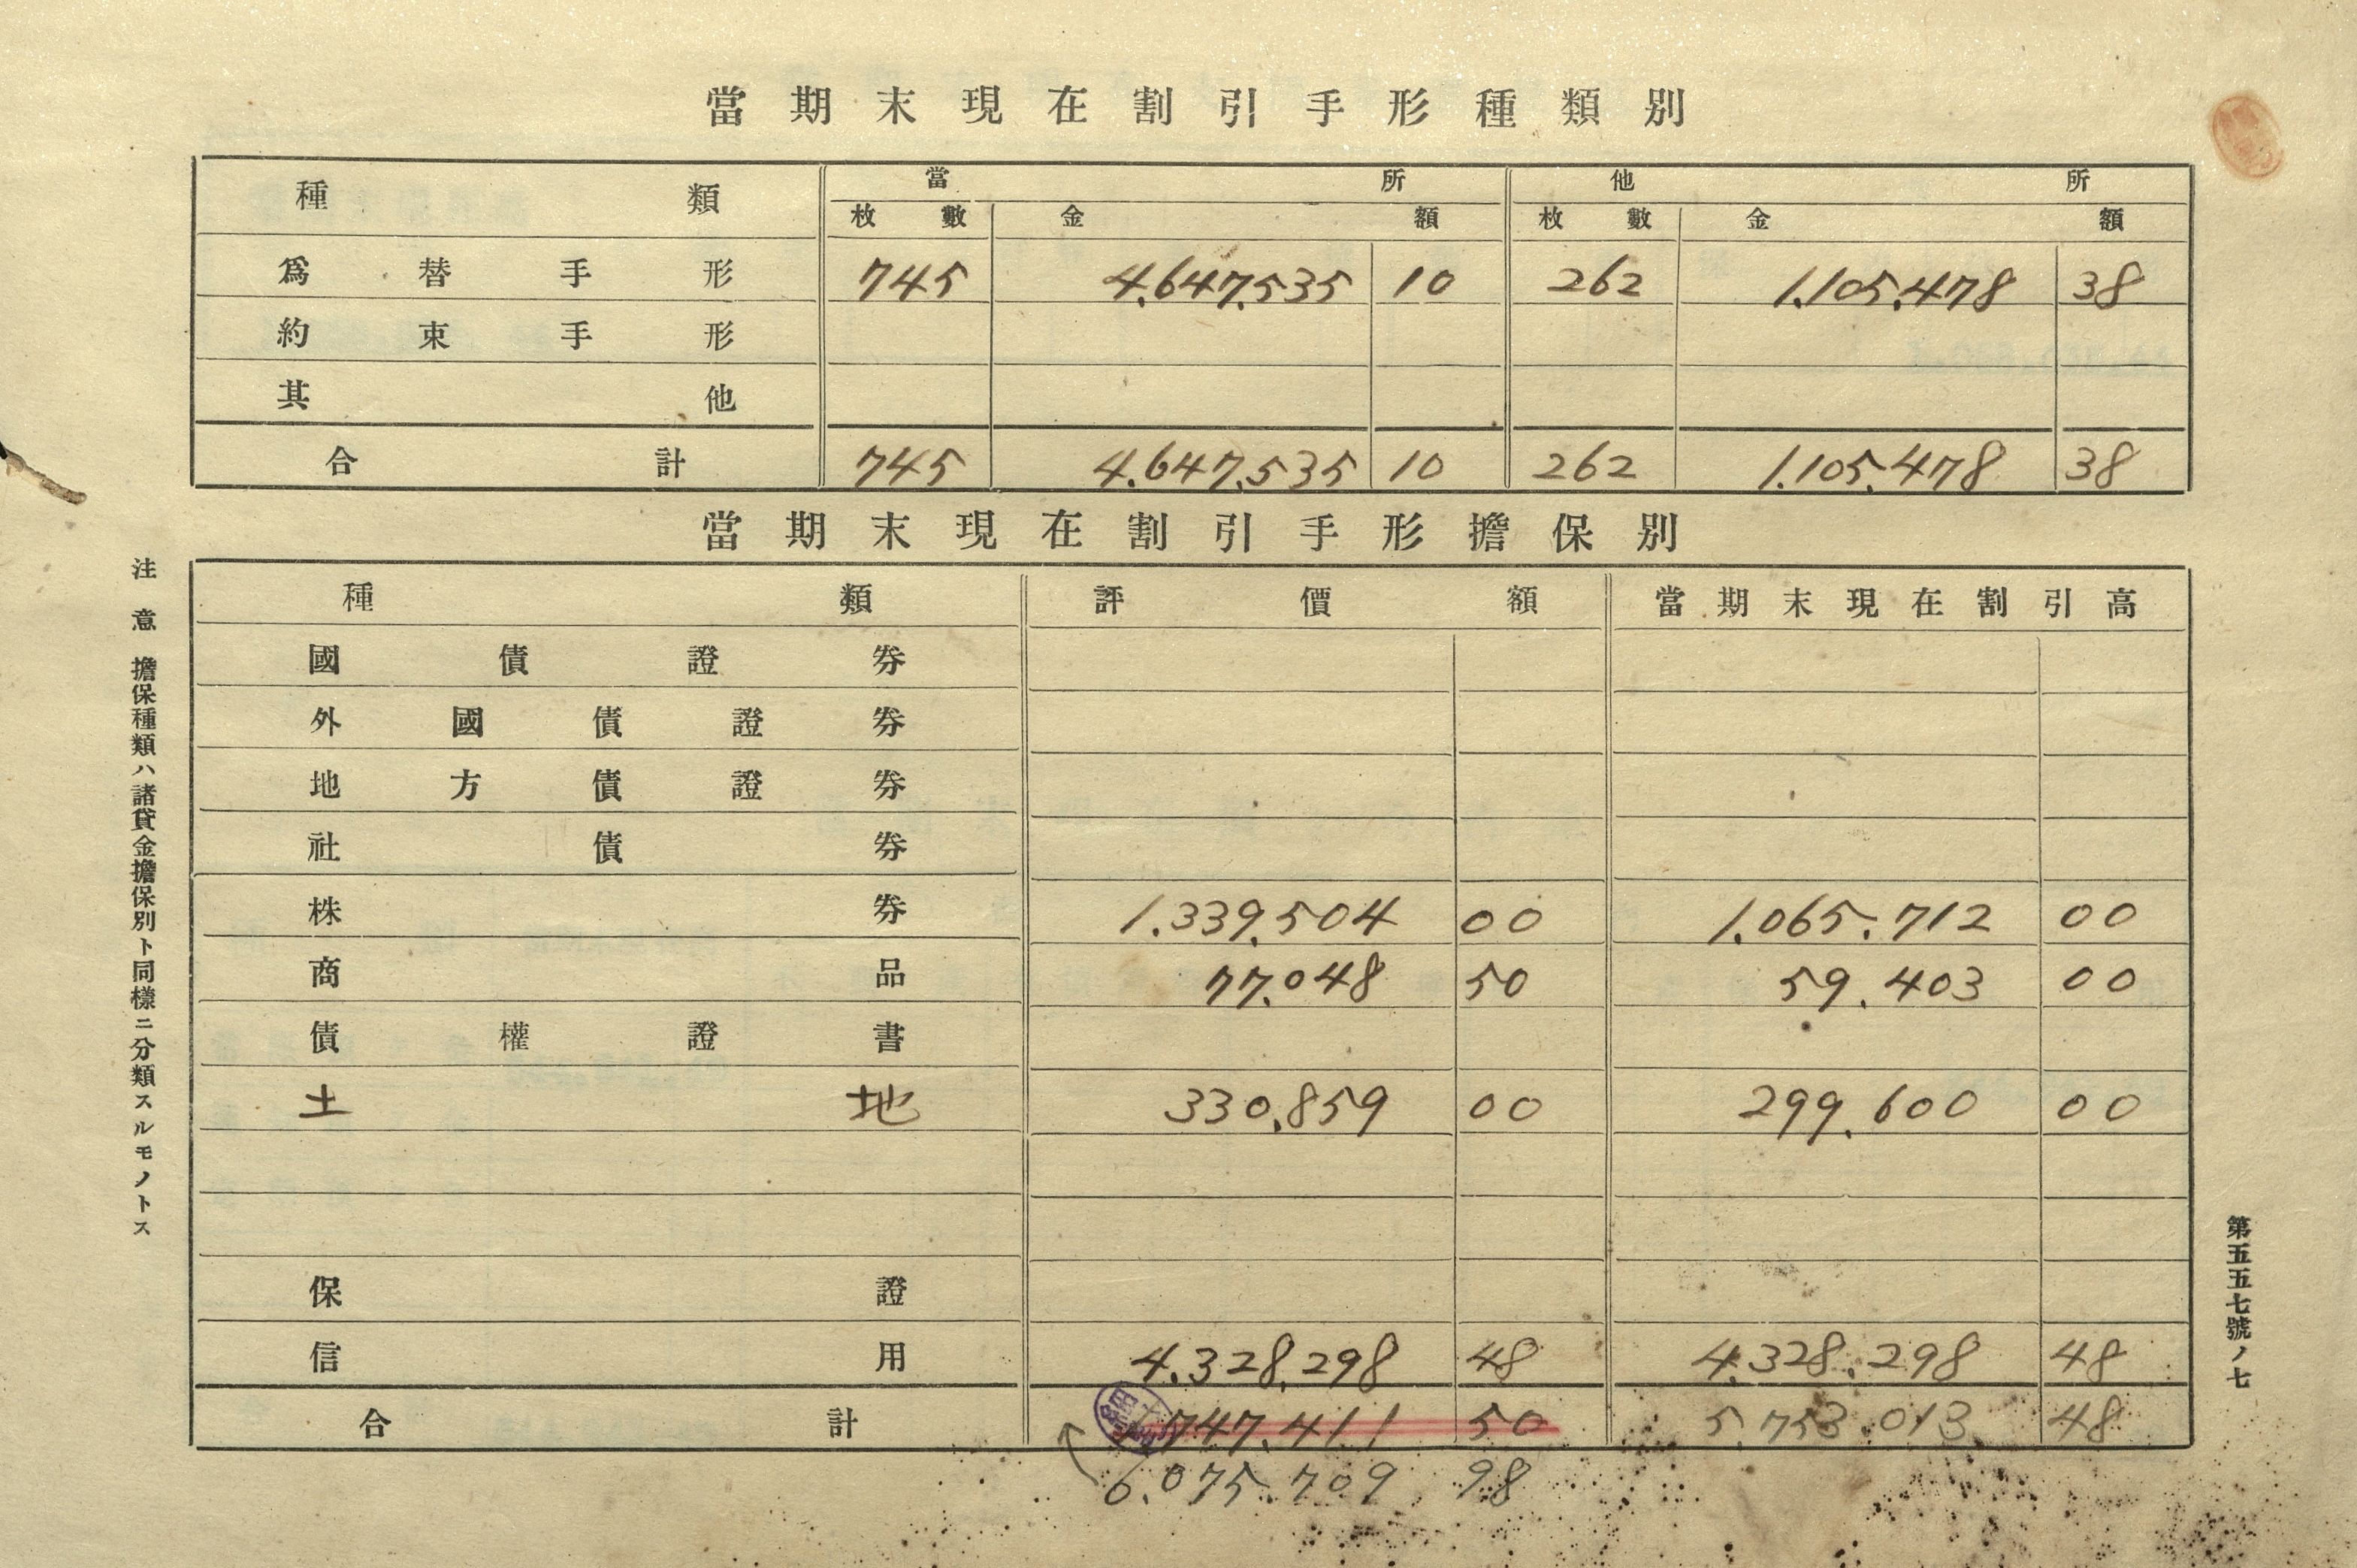 當期末現在割引手形種類別
種類 當所 他所
枚數 金額 枚數 金額
爲替手形 745 4.647.535 10 262 1.105.478 38
約束手形
其他
合計 745 4.647.535 10 262 1.105.478 38
當期末現在割引手形擔保別
種類 評價額 當期末現在割引高
國債證券
外國債證券
地方債證券
社債券
株券 1.339.504 00 1.065.712 00
商品 77.048 50 59.403 00
債權證書
土地 330.859 00 299.600 00
保證
信用 4.328.298 48 4.328.298 48
合計 1.747.411 50 5.753.013 48
6.075.709 98
注意 擔保種類ハ諸貸金擔保別ト同樣ニ分類スルモノトス
第五五七號ノ七